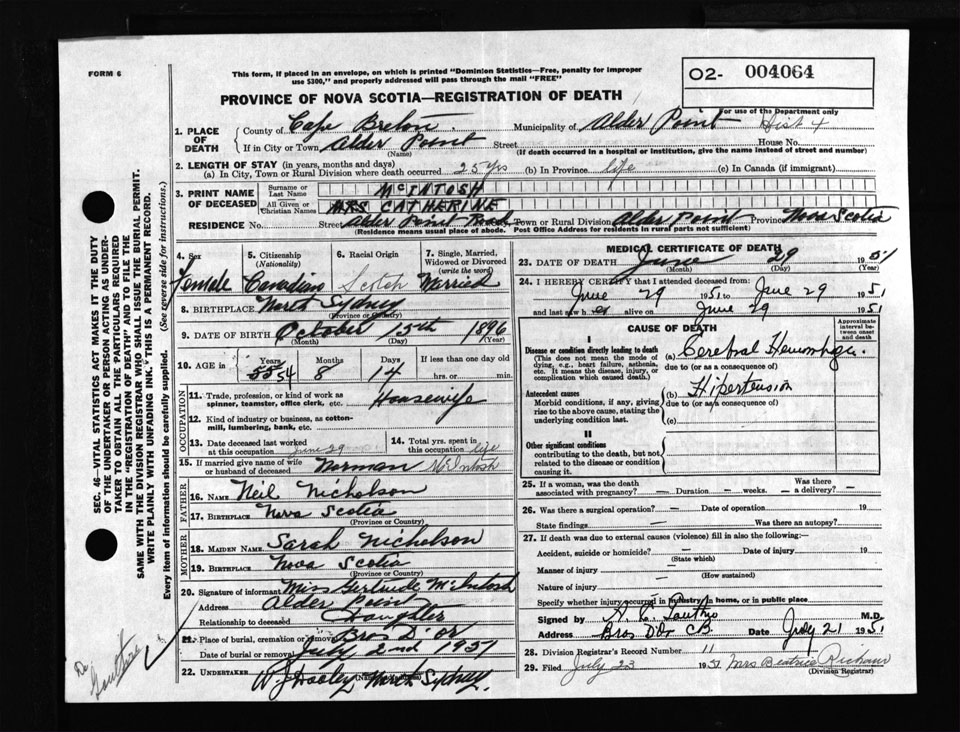 FORM 6
This form, if placed in an envelope, on which is printed "Dominion Statistics—Free, penalty for improper
use $300," and properly addressed will pass through the mail "FREE"
02- 004064
For use of the Department only
PROVINCE OF NOVA SCOTIA—REGISTRATION OF DEATH
1. PLACE OF DEATH
County of Cape Breton Municipality of Alder Point Dist 4
If in City or Town Alder Point Street House No.
(Name) (If death occurred in a hospital or institution, give the name instead of street and number)
2. LENGTH OF STAY (in years, months and days)
(a) In City, Town or Rural Division where death occurred 25 yrs (b) In Province life (c) In Canada (if immigrant)
3. PRINT NAME OF DECEASED
Surname or Last Name McINTOSH
All Given or Christian Names MRS CATHERINE
RESIDENCE No. Street Alder Point Road Town or Rural Division Alder Point Province Nova Scotia
(Residence means usual place of abode. Post Office Address for residents in rural parts not sufficient)
4. Sex
Female
5. Citizenship
(Nationality)
Canadian
6. Racial Origin
Scotch
7. Single, Married,
Widowed or Divorced
(write the word)
Married
8. BIRTHPLACE North Sydney
(Province or Country)
9. DATE OF BIRTH October 15th 1896
(Month) (Day) (Year)
10. AGE in
Years Months Days If less than one day old
54 8 14 hrs. or min.
OCCUPATION
11. Trade, profession, or kind of work as
spinner, teamster, office clerk, etc. Housewife
12. Kind of industry or business, as cotton-
mill, lumbering, bank, etc.
13. Date deceased last worked
at this occupation June 29
14. Total yrs. spent in
this occupation life
15. If married give name of wife
or husband of deceased Norman McIntosh
FATHER
16. NAME Neil Nicholson
17. BIRTHPLACE Nova Scotia
(Province or Country)
MOTHER
18. MAIDEN NAME Sarah Nicholson
19. BIRTHPLACE Nova Scotia
(Province or Country)
20. Signature of informant Miss Gertrude McIntosh
Address Alder Point
Relationship to deceased Daughter
21. Place of burial, cremation or removal Bras D'or
Date of burial or removal July 2nd 1951
22. UNDERTAKER North Sydney
MEDICAL CERTIFICATE OF DEATH
23. DATE OF DEATH June 29 1951
(Month) (Day) (Year)
24. I HEREBY CERTIFY that I attended deceased from:
June 29 1951 to June 29 1951
and last saw her alive on June 29 1951
CAUSE OF DEATH
Approximate
interval be-
tween onset
and death
I
Disease or condition directly leading to death
(This does not mean the mode of
dying, e.g., heart failure, asthenia,
etc. It means the disease, injury, or
complication which caused death.)
(a) Cerebral Hemorrhage
due to (or as a consequence of)
Antecedent causes
Morbid conditions, if any, giving
rise to the above cause, stating the
underlying condition last.
(b) Hipertension
due to (or as a consequence of)
(c)
II
Other significant conditions
contributing to the death, but not
related to the disease or condition
causing it.
25. If a woman, was the death
associated with pregnancy? — Duration — weeks. — Was there
a delivery? —
26. Was there a surgical operation? — Date of operation 19
State findings — Was there an autopsy?
27. If death was due to external causes (violence) fill in also the following:—
Accident, suicide or homicide? — Date of injury 19
(State which)
Manner of injury —
(How sustained)
Nature of injury —
Specify whether injury occurred in industry, in home, or in public place
Signed by M.D.
Address Bras D'Or CB Date July 21 1951
28. Division Registrar's Record Number 11
29. Filed July 23 1951 Mrs Beatrice
(Division Registrar)
SEC. 46—VITAL STATISTICS ACT MAKES IT THE DUTY
OF THE UNDERTAKER OR PERSON ACTING AS UNDER-
TAKER TO OBTAIN ALL THE PARTICULARS REQUIRED
IN THE "REGISTRATION OF DEATH" AND TO FILE THE
SAME WITH THE DIVISION REGISTRAR WHO SHALL ISSUE THE BURIAL PERMIT.
WRITE PLAINLY WITH UNFADING INK. THIS IS A PERMANENT RECORD.
(See reverse side for instructions.)
Every item of information should be carefully supplied.